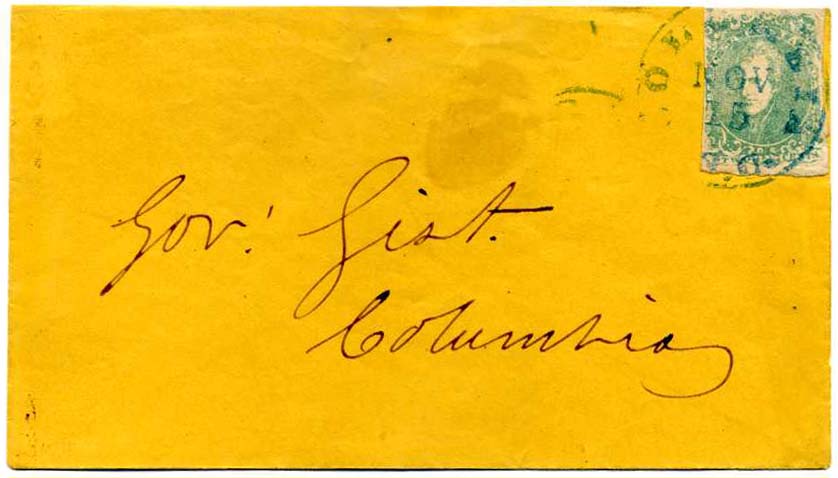 NOV
15
Gov! Gist.
Columbia